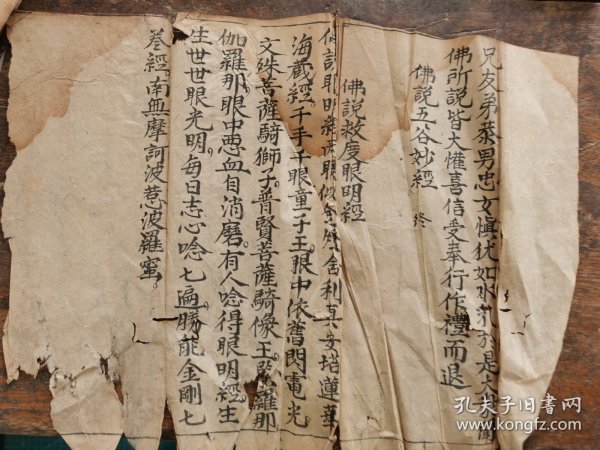 兄友弟恭男忠女慎优如水乳於是大眾聞
佛所說皆大懽喜信受奉行作禮而退
佛說五谷妙經 終
佛說救度眼明經
舍利真安塔蓮華
海藏經千手千眼童子王眼中依舊閃電光
文殊菩薩騎獅子普賢菩薩騎像王監羅那
伽羅那眼中惡血自消磨有人唸得眼明經生
生世世眼光明每日志心唸七遍勝能金剛七
卷經南無摩訶波惹波羅蜜
孔夫子旧書网
www.kongfz.com